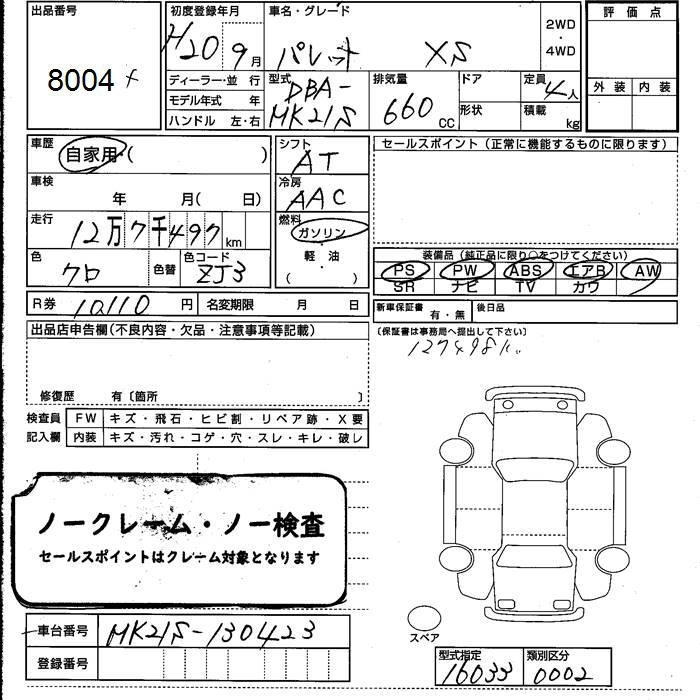 出品番号
8004
初度登録年月
H20 9月
車名・グレード
パレット XS
2WD
・
4WD
評価点
外装 内装
ディーラー・並行
モデル年式 年
ハンドル 左・右
型式
DBA-
MK21S
排気量
660 CC
ドア
形状
定員
4人
積載
kg
車歴
自家用・( )
車検
年 月 ( 日)
走行
12万7千497km
色
クロ
色替
色コード
ZJ3
シフト
AT
冷房
AAC
燃料
ガソリン
・
軽油
( )
セールスポイント (正常に機能するものに限ります)
装備品 (純正品に限り○をつけてください)
PS PW ABS エアB AW
SR ナビ TV カワ
R券 10110 円
名変期限 月 日
新車保証書 有・無
後日品
(保証書は事務局へ提出して下さい)
127498K
出品店申告欄(不良内容・欠品・注意事項等記載)
修復歴 有〔箇所 〕
検査員
記入欄
FW キズ・飛石・ヒビ割・リペア跡・X要
内装 キズ・汚れ・コゲ・穴・スレ・キレ・破レ
ノークレーム・ノー検査
セールスポイントはクレーム対象となります
車台番号 MK21S-130423
登録番号
スペア
型式指定
16033
類別区分
0002